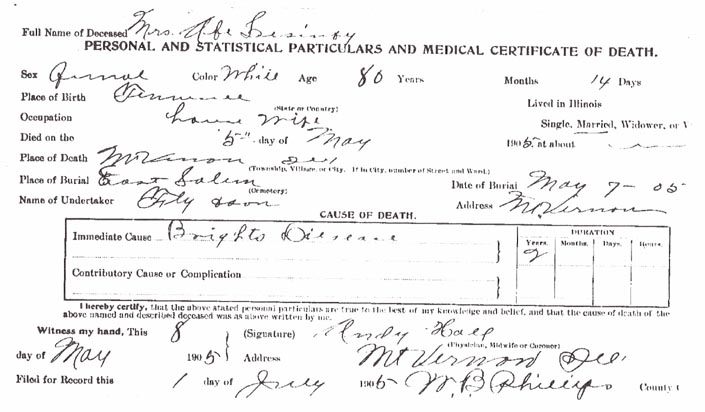 Full Name of Deceased Mrs. Abe
PERSONAL AND STATISTICAL PARTICULARS AND MEDICAL CERTIFICATE OF DEATH.
Sex Female Color White Age 80 Years Months 14 Days
Place of Birth Tennessee (State or Country) Lived in Illinois
Occupation house wife Single, Married, Widower, or
Died on the "5" day of May 1905 at about
Place of Death Mt Vernon Ill (Township, Village, or City. If in City, number of Street and Ward.)
Place of Burial East Salem (Cemetery) Date of Burial May 7-05
Name of Undertaker Address Mt Vernon
CAUSE OF DEATH.
Immediate Cause Brights Disease
DURATION
Years. Months. Days. Hours.
2
Contributory Cause or Complication
I hereby certify, that the above stated personal particulars are true to the best of my knowledge and belief, and that the cause of death of the
above named and described deceased was as above written by me.
Witness my hand, This 8 (Signature) Andy Hall
(Physician, Midwife or Coroner)
day of May 1905 Address Mt Vernon Ill
Filed for Record this 1 day of July 1905 W B Phillips County